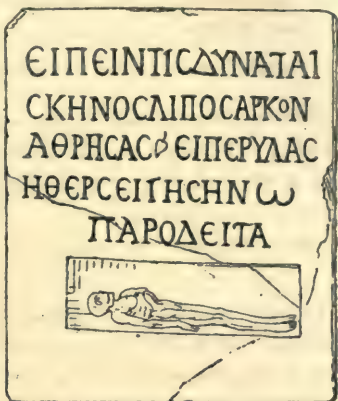 ΕΙΠΕΙΝΤΙϹΔΥΝΑΤΑΙ
ϹΚΗΝΟϹΛΙΠΟϹΑΡΚΟΝ
ΑΘΡΗϹΑϹ ΕΙΠΕΡΥΛΑϹ
ΗΘΕΡϹΕΙΤΗϹΗΝ Ω
ΠΑΡΟΔΕΙΤΑ